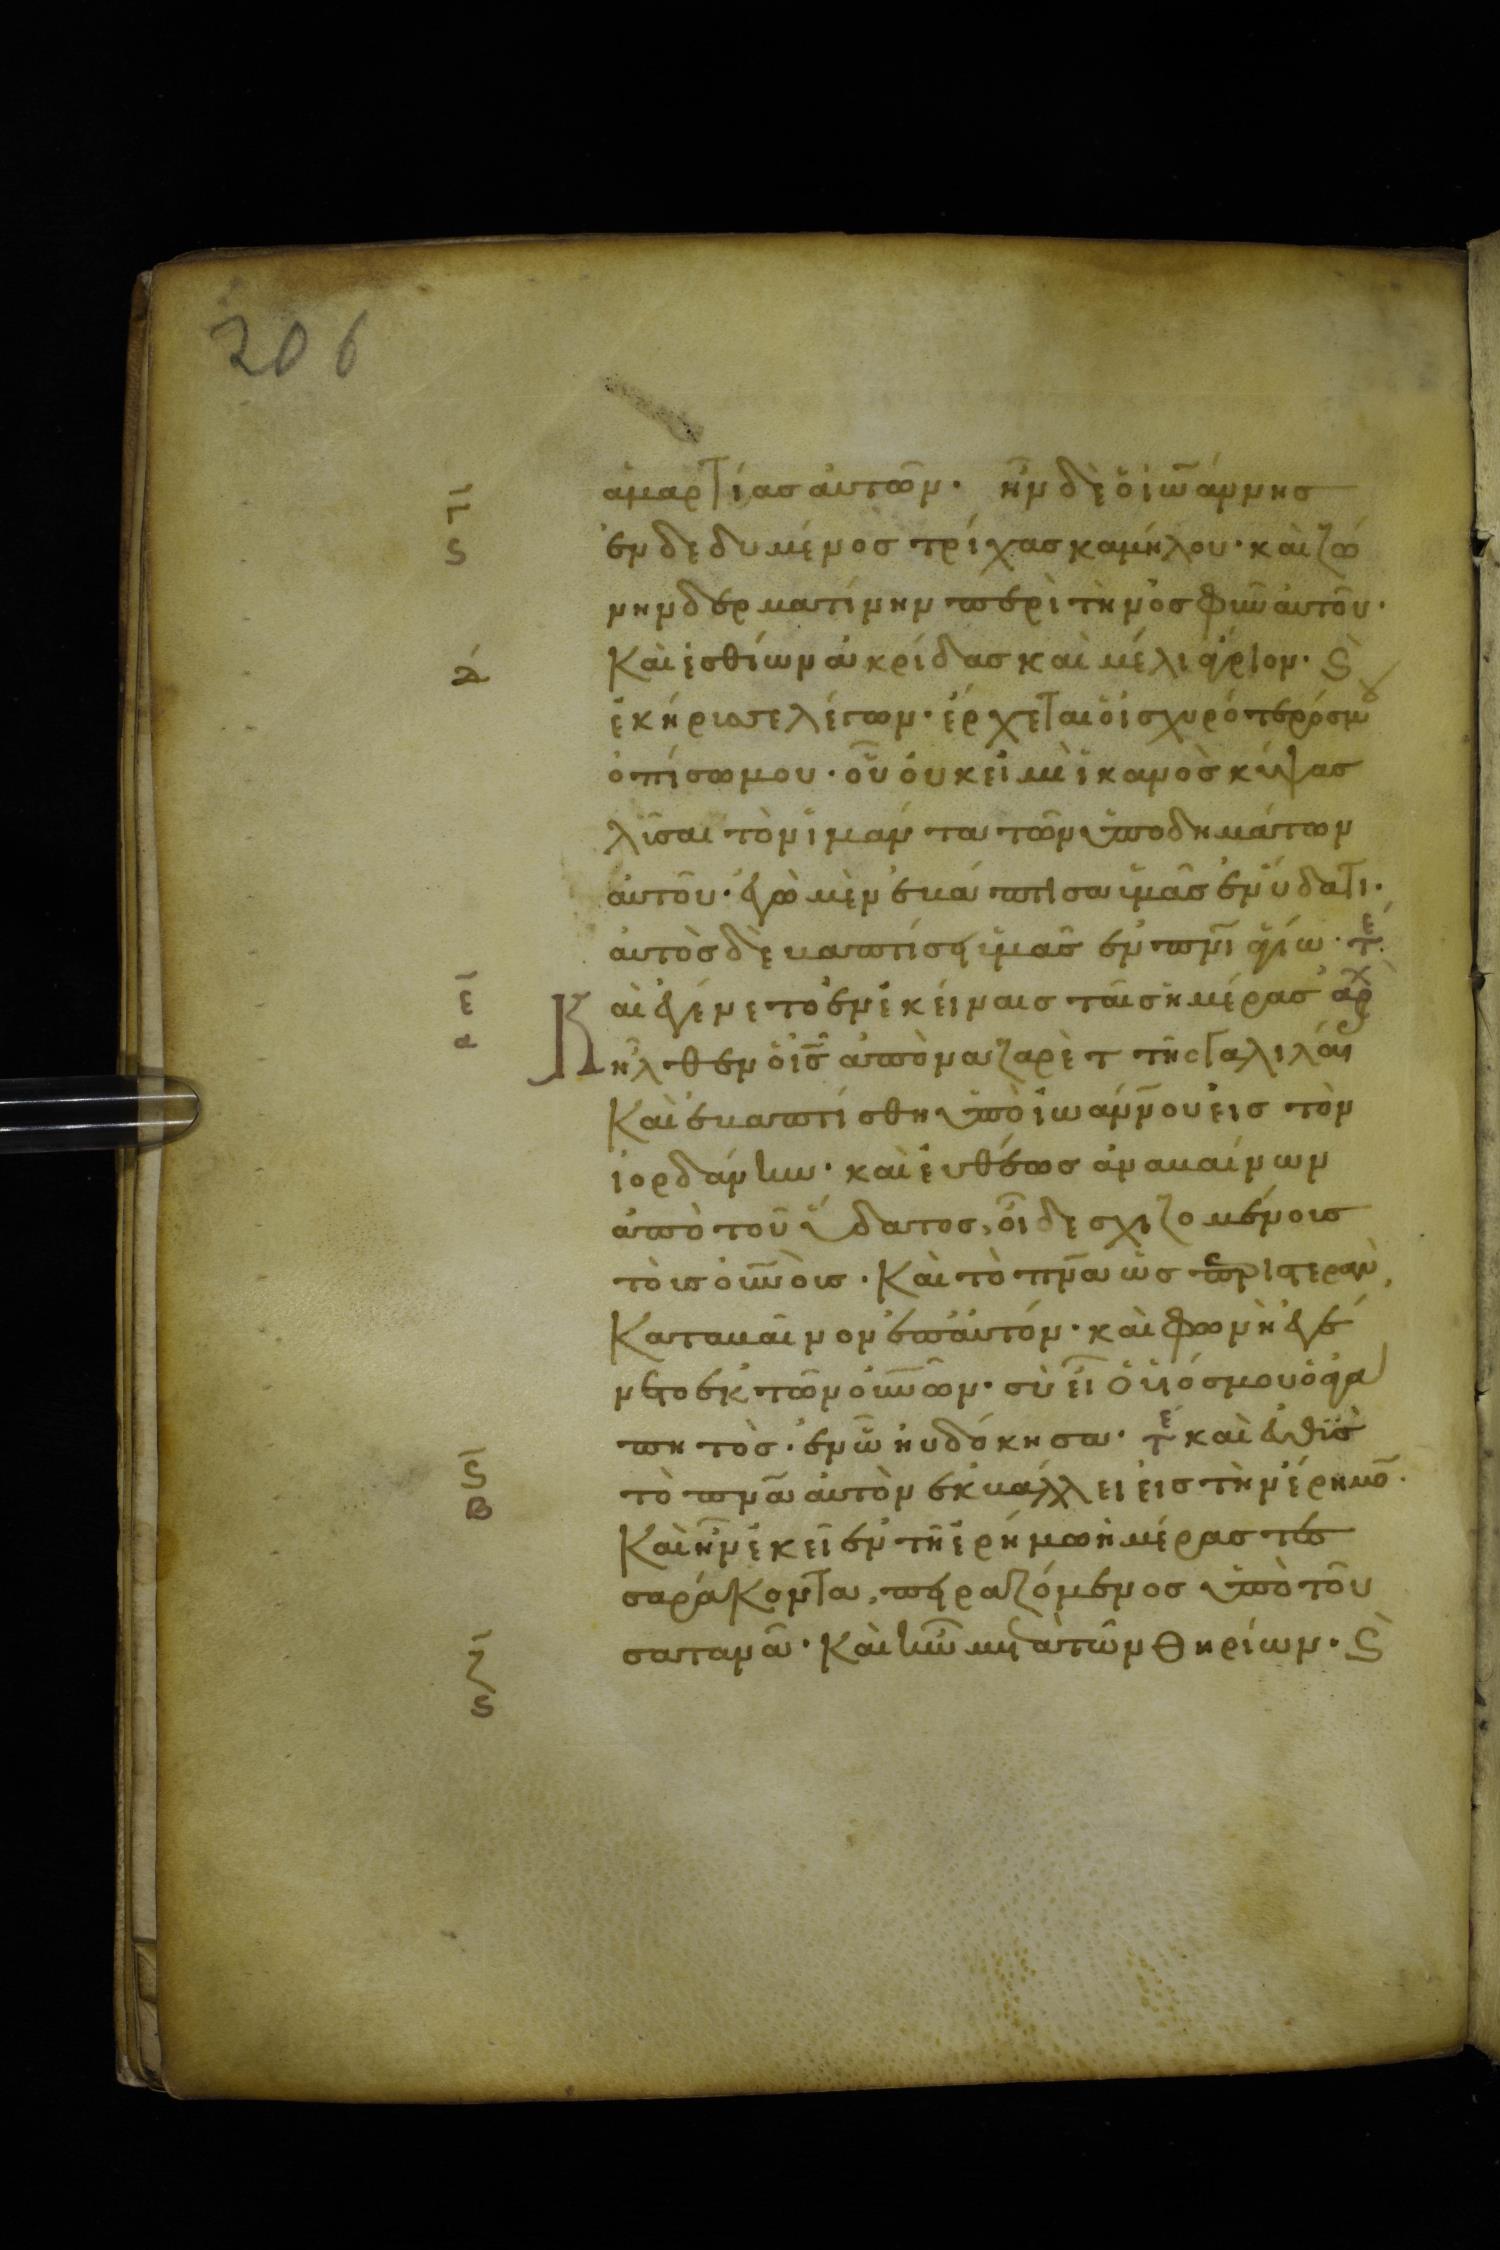 206
ἁμαρτίας αὐτῶν· ἦν δὲ ὁ ἰωάννης
ἐνδεδυμένος τρίχας καμήλου· καὶ ζώ
νην δερματίνην περὶ τὴν ὀσφῦν αὐτοῦ·
Καὶ ἐσθίων ἀκρίδας καὶ μέλι ἄγριον· Ϛ
ἐκήρυσσε λέγων· ἔρχεται ὁ ἰσχυρότερός μου
ὀπίσω μου· οὗ οὐκ εἰμὶ ἱκανὸς κύψας
λῦσαι τὸν ἱμάντα τῶν ὑποδημάτων
αὐτοῦ· ἐγὼ μὲν ἐβάπτισα ὑμᾶς ἐν ὕδατι·
αὐτὸς δὲ βαπτίσει ὑμᾶς ἐν πνι ἁγίω·
Καὶ ἐγένετο ἐν ἐκείναις ταῖς ἡμέραις
ἦλθεν ὁ ις ἀπὸ ναζαρὲτ τῆς Γαλιλαί
Καὶ ἐβαπτίσθη ὑπὸ ἰωάννου εἰς τὸν
ἰορδάνην· καὶ ἐυθέως ἀναβαίνων
ἀπὸ τοῦ ὕδατος, οἶδε σχιζομένους
τοὺς οὐνοὺς· Καὶ τὸ πνα ὡς περιστερὰν,
Καταβαῖνον ἐπ αὐτόν· καὶ φωνὴ ἐγέ
νετο ἐκ τῶν οὐνῶν· σὺ εἶ ὁ υἱός μου ὁ ἀγα
πητὸς· ἐν ὧ ηὐδόκησα· καὶ ἐυθὺς
τὸ πνα αὐτὸν ἐκβάλλει εἰς τὴν ἔρημον·
Καὶ ἦν ἐκεῖ ἐν τῆ ἐρήμω ἡμέρας τεσ
σαράκοντα, πειραζόμενος ὑπὸ τοῦ
σατανᾶ· Καὶ ἦν μετὰ τῶν θηρίων· Ϛ